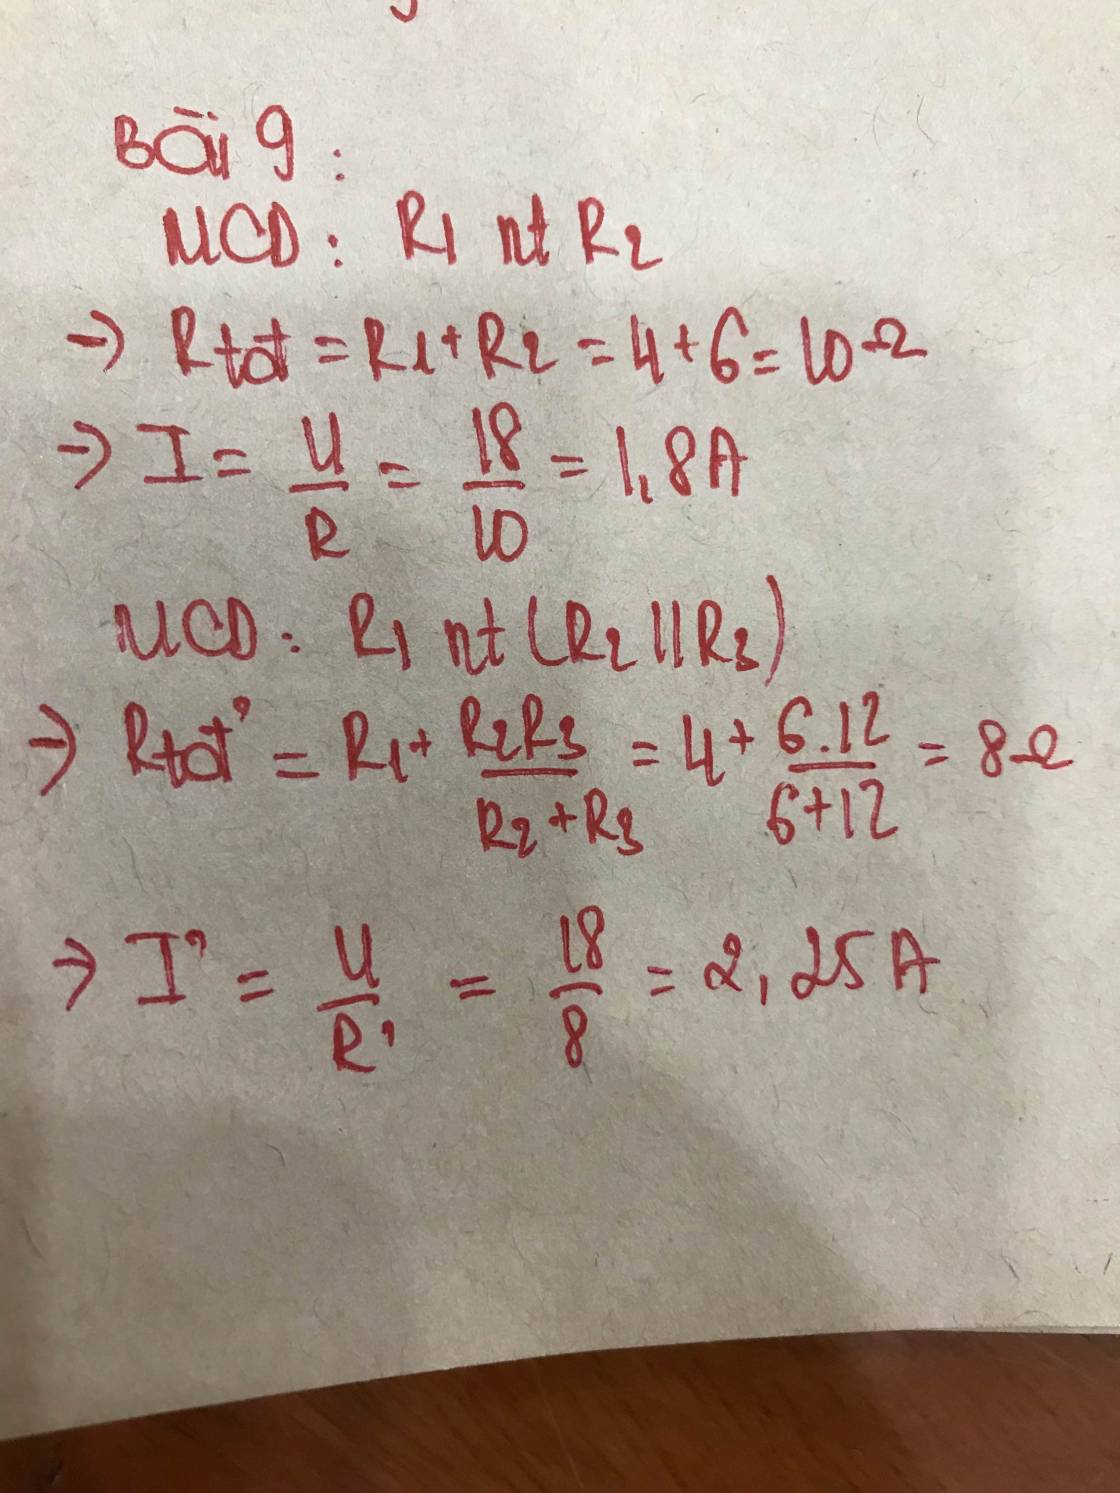 Bài 9 :
MCD : R1 nt R2
→ Rtot = R1 + R2 = 4 + 6 = 10 Ω
→ I = U/R = 18/10 = 1,8A
MCD : R1 nt (R2 || R3)
→ Rtot' = R1 + R2R3/R2+R3 = 4 + 6.12/6+12 = 8Ω
→ I' = U/R' = 18/8 = 2,25A